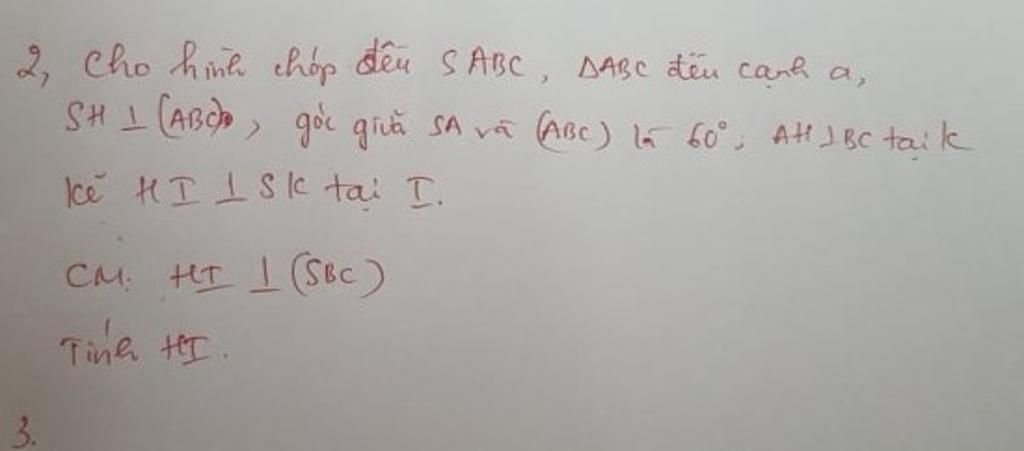 2, Cho hình chóp đều SABC, ΔABC đều cạnh a,
SH ⊥ (ABC), góc giữa SA và (ABC) là 60°, AH ⊥ BC tại K
kẻ HI ⊥ SK tại I.
CM: HI ⊥ (SBC)
Tính HI.
3.